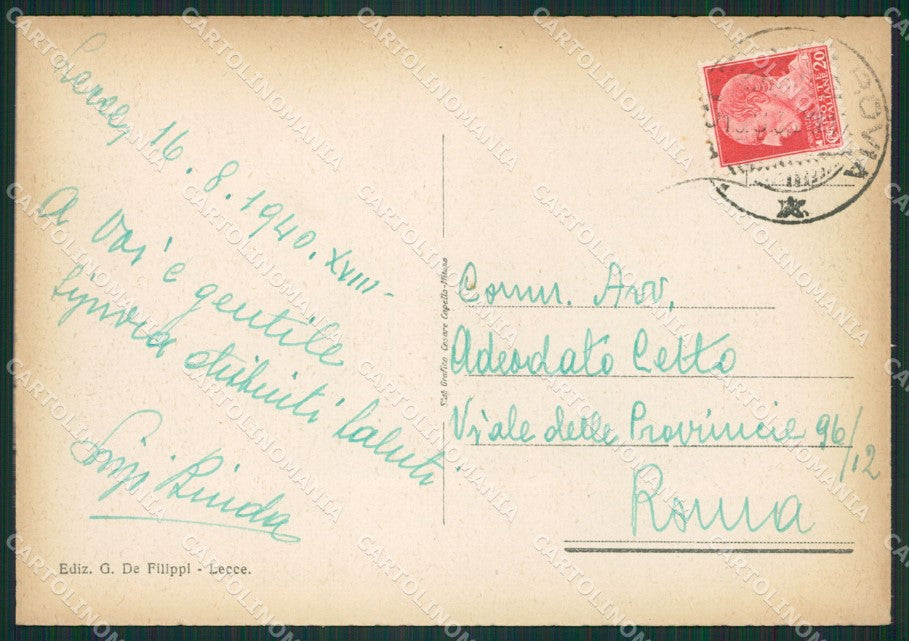 Lecce, 16.8.1940.XVIII-
A Voi e gentile
Signora distinti saluti.
Luigi Binda
Ediz. G. De Filippi - Lecce.
Stab. Grafico Cesare Capello-Milano
POSTE ITALIANE
20
Comm. Avv.
Adeodato Cetto
Viale delle Provincie 96/12
Roma
CARTOLINOMANIA